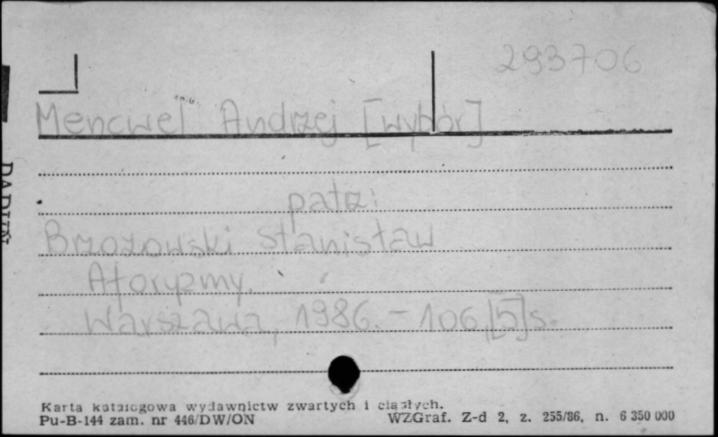 293706
Mencwel Andrzej [wybór]
patrz:
Brzozowski Stanisław
Aforyzmy.
Warszawa, 1986. - 106,[5]s.
Karta katalogowa wydawnictw zwartych i ciągłych.
Pu-B-144 zam. nr 446/DW/ON WZGraf. Z-d 2, z. 255/86, n. 6 350 000